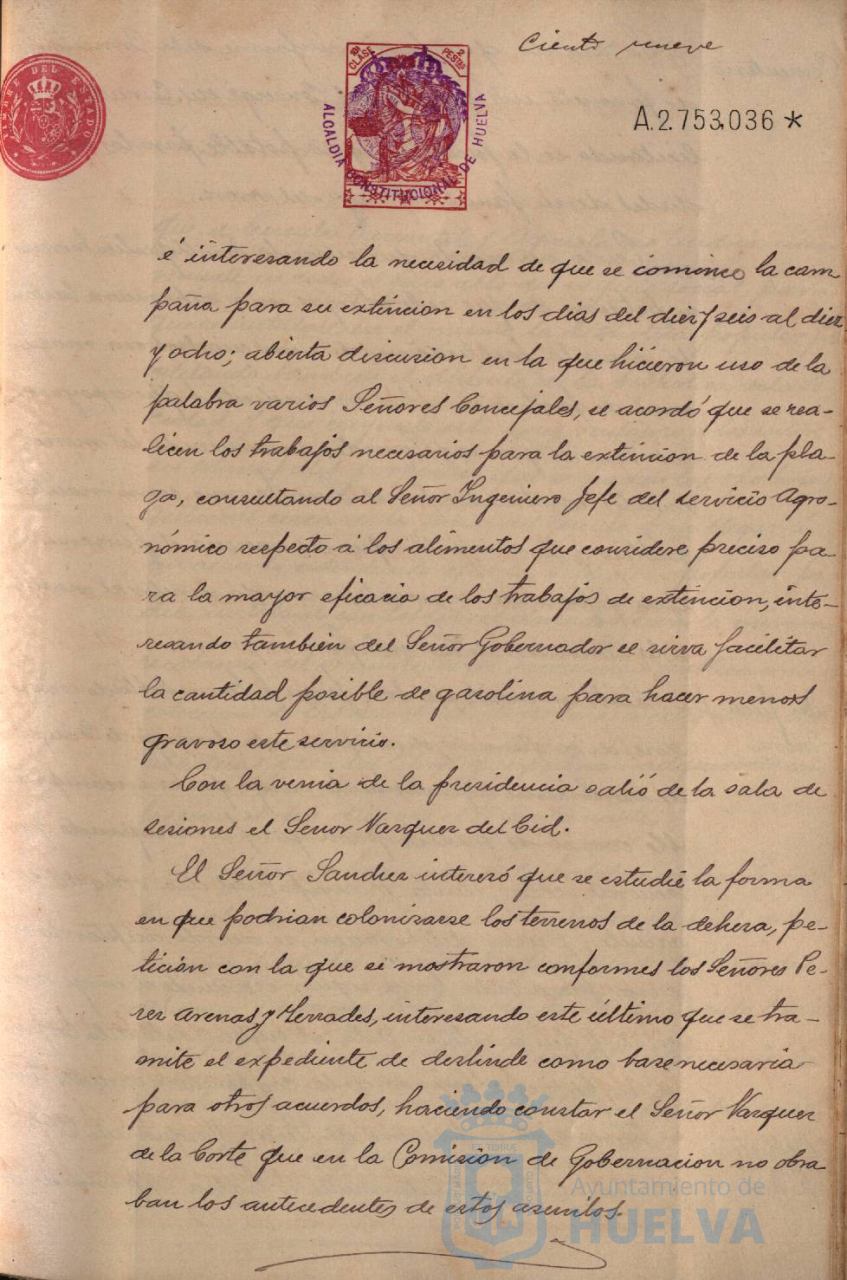 Ciento nueve
TIMBRE DEL ESTADO
10ª CLASE
2 PESETAS
ALCALDIA CONSTITUCIONAL DE HUELVA
A.2.753,036 *
é interesando la necesidad de que se comince la cam
paña para su extincion en los dias del diez y seis al diez
y ocho; abierta discusion en la que hicieron uso de la
palabra varios Señores Concejales, se acordó que se rea-
licen los trabajos necesarios para la extincion de la pla-
ga, consultando al Señor Ingeniero Jefe del servicio Agro-
nómico respecto á los alimentos que considere preciso pa-
ra la mayor eficacia de los trabajos de extincion, inte-
resando también del Señor Gobernador se sirva facilitar
la cantidad posible de gasolina para hacer menos
gravoso este servicio.
Con la venia de la presidencia salió de la sala de
sesiones el Señor Vazquez del Cid.
El Señor Sanchez interesó que se estudie la forma
en que podrian colonizarse los terrenos de la dehesa, pe-
tición con la que se mostraron conformes los Señores Pe-
rez Arenas y Terrades, interesando este último que se tra-
mite el expediente de deslinde como base necesaria
para otros acuerdos, haciendo constar el Señor Vazquez
de la Corte que en la Comision de Gobernacion no obra
ban los antecedentes de estos asuntos.
Ayuntamiento de
HUELVA